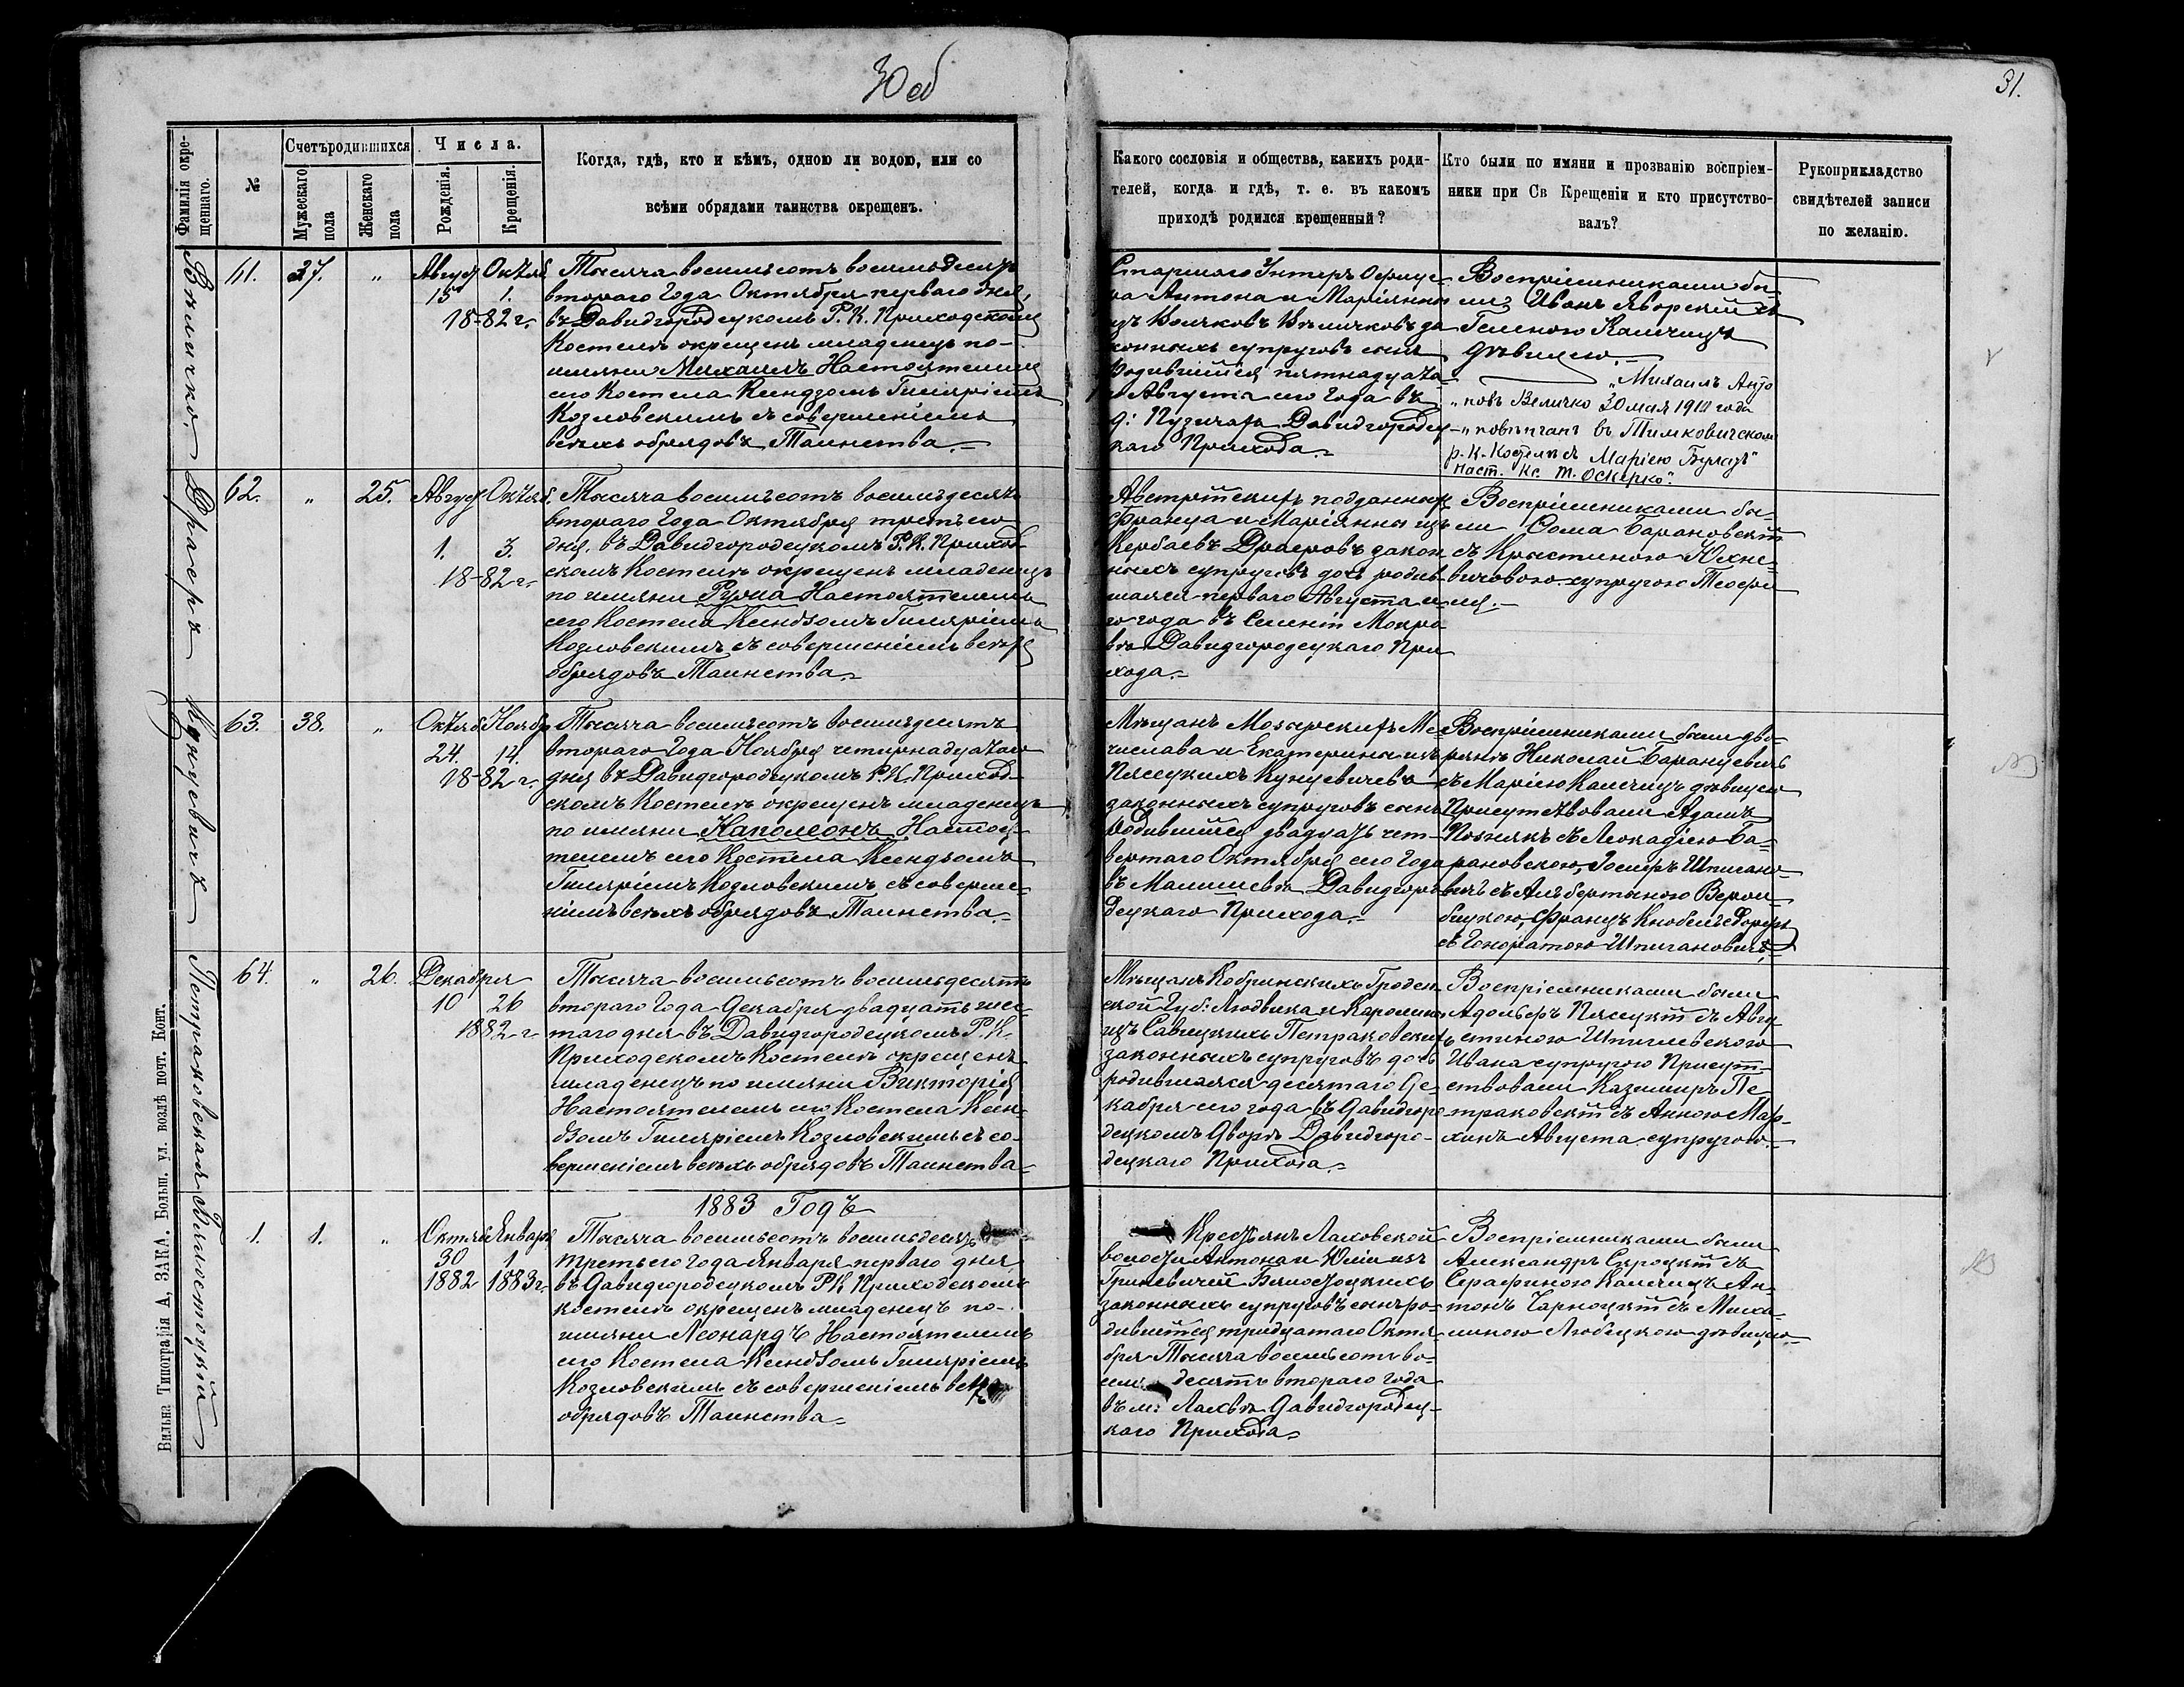 30 об
31.
Фамилія окре-
щеннаго.
№
Счетъ родившихся
Мужескаго
пола
Женскаго
пола
Числа.
Рожденія.
Крещенія.
Когда, гдѣ, кто и кѣмъ, одною ли водою, или со
всѣми обрядами таинства окрещенъ.
Какого сословія и общества, какихъ роди-
телей, когда и гдѣ, т. е. въ какомъ
приходѣ родился крещенный?
Кто были по имяни и прозванію воспріем-
ники при Св Крещеніи и кто присутство-
валъ?
Рукоприкладство
свидѣтелей записи
по желанію.
Величко
61.
37.
"
Август Октяб
15 1.
18-82 г.
Тысяча восемьсотъ восемьдесятъ
втораго Года Октября перваго дня,
въ Давидгородецкомъ Р. К. Приходскомъ
Костелѣ окрещенъ младенецъ по-
имяни Михаилъ Настоятелемъ
сего Костела Ксендзомъ Гиляріемъ
Козловскимъ съ совершеніемъ
всѣхъ обрядовъ Таинства.
Старшаго Унтеръ Офице-
ра Антона и Маріянны
изъ Величковъ за
конныхъ супруговъ сынъ
родившійся пятнадцата-
го Августа сего Года въ
д: Пузичахъ Давидгородец-
каго Прихода.
Воспріемниками бы-
ли Иванъ Яворскій съ
Геленою Калечицъ
дѣвицею.
"Михаилъ Анто
"новъ Величко 30 мая 1910 года
"повѣнчанъ въ Тимковичском
р.-к. Костелѣ съ Маріею
наст. Кс. Т. Оскерко".
Драеръ
62.
"
25.
Август Октяб.
1. 3.
18-82 г.
Тысяча восемьсотъ восемьдесятъ
втораго Года Октября третьяго
дня. въ Давидгородецкомъ Р. К. Приход-
скомъ Костелѣ окрещенъ младенецъ
по имяни Рузна Настоятелемъ
сего Костела Ксендзомъ Гиляріемъ
Козловскимъ съ совершеніемъ всѣхъ
обрядовъ Таинства.
Австрійскихъ подданныхъ
Франца и Маріянны изъ
Кербаевъ Драеровъ закон
ныхъ супруговъ дочь родив
шаяся перваго Августа се
го года въ Селеніи Мокро
вѣ Давидгородецкаго При
хода.
Воспріемниками бы-
ли Ѳома Барановскій
съ Кристиною Юхне-
вичовою супругою Теофи
ля.
Кунцевичъ
63.
38.
"
Октяб Ноябр
24. 14.
18-82 г.
Тысяча восемьсотъ восемьдесятъ
втораго Года Ноября четырнадцатаго
дня въ Давидгородецкомъ Р. К. Приход-
скомъ Костелѣ окрещенъ младенецъ
по имяни Наполеонъ Настоя-
телемъ сего Костела Ксендзомъ
Гиляріемъ Козловскимъ, съ соверше-
ніемъ всѣхъ обрядовъ Таинства.
Мѣщанъ Мозырскихъ Ме-
числава и Екатерины изъ
Пясецкихъ Кунцевичевъ
законныхъ супруговъ сынъ
родившійся двадцать чет-
вертаго Октября сего Года
въ Малишевѣ Давидгоро
децкаго Прихода.
Воспріемниками были дво-
рянъ Николай Баранцевичъ
съ Маріею Калечицъ дѣвицею
Присутствовали Адамъ
Познякъ съ Леокадіею Ба-
рановскою, Іосифъ Шпилано-
вичъ съ Альбертыною Верон-
бецкою, Францъ Кнобельсдорфъ
съ Гоноратою Шпилановичъ
Петраковская
64.
"
26.
Декабря
10 26
1882 г
Тысяча восемьсотъ восемьдесятъ
втораго Года Декабря двадцать шес-
таго дня въ Давидгородецкомъ Р. К.
Приходскомъ Костелѣ окрещенъ
младенецъ по имяни Викторія
Настоятелемъ сего Костела Ксен-
дзомъ Гиляріемъ Козловскимъ съ со-
вершеніемъ всѣхъ обрядовъ Таинства
Мѣщанъ Кобринскихъ Гроден-
ской Губ: Людвика и Каролины
изъ Савицкихъ Петраковскихъ
законныхъ супруговъ дочь
родившаяся десятаго Де-
кабря сего года въ Давидгоро
децкомъ Дворѣ Давидгоро-
децкаго Прихода.
Воспріемниками были
Адольфъ Пясецкій съ Авгу
стиною Шпилевского
Ивана супругою Присут-
ствовали Казимиръ Пе
траковскій съ Анною Мар-
хинъ Августа супругою.
1883 Годъ
Бялостоцкій
1.
1.
"
Октяб Январ
30 1
1882 1883 г.
Тысяча восемьсотъ восемьдесятъ
третьяго года Января перваго дня
въ Давидгородецкомъ Р К Приходскомъ
костелѣ окрещенъ младенецъ по-
имяни Леонардъ Настоятелемъ
сего Костела Ксендзомъ Гиляріемъ
Козловскимъ съ совершеніемъ всѣхъ
обрядовъ Таинства
Крестьянъ Лаховской
волости Антона и Юліи изъ
Гриневичей Бялостоцкихъ
законныхъ супруговъ сынъ ро-
дившійся тридцатаго Октя-
бря Тысяча восемьсотъ во-
семь десятъ втораго года
въ м: Лахвѣ Давидгородец-
каго Прихода
Воспріемниками были
Александръ Скроцкій съ
Серафиною Калечицъ Ан-
тонъ Чарноцкій съ Миха-
линою Любецкою дѣвицею
Вильна Типографія А, ЗАКА. Больш. ул. возлѣ почт. Конт.